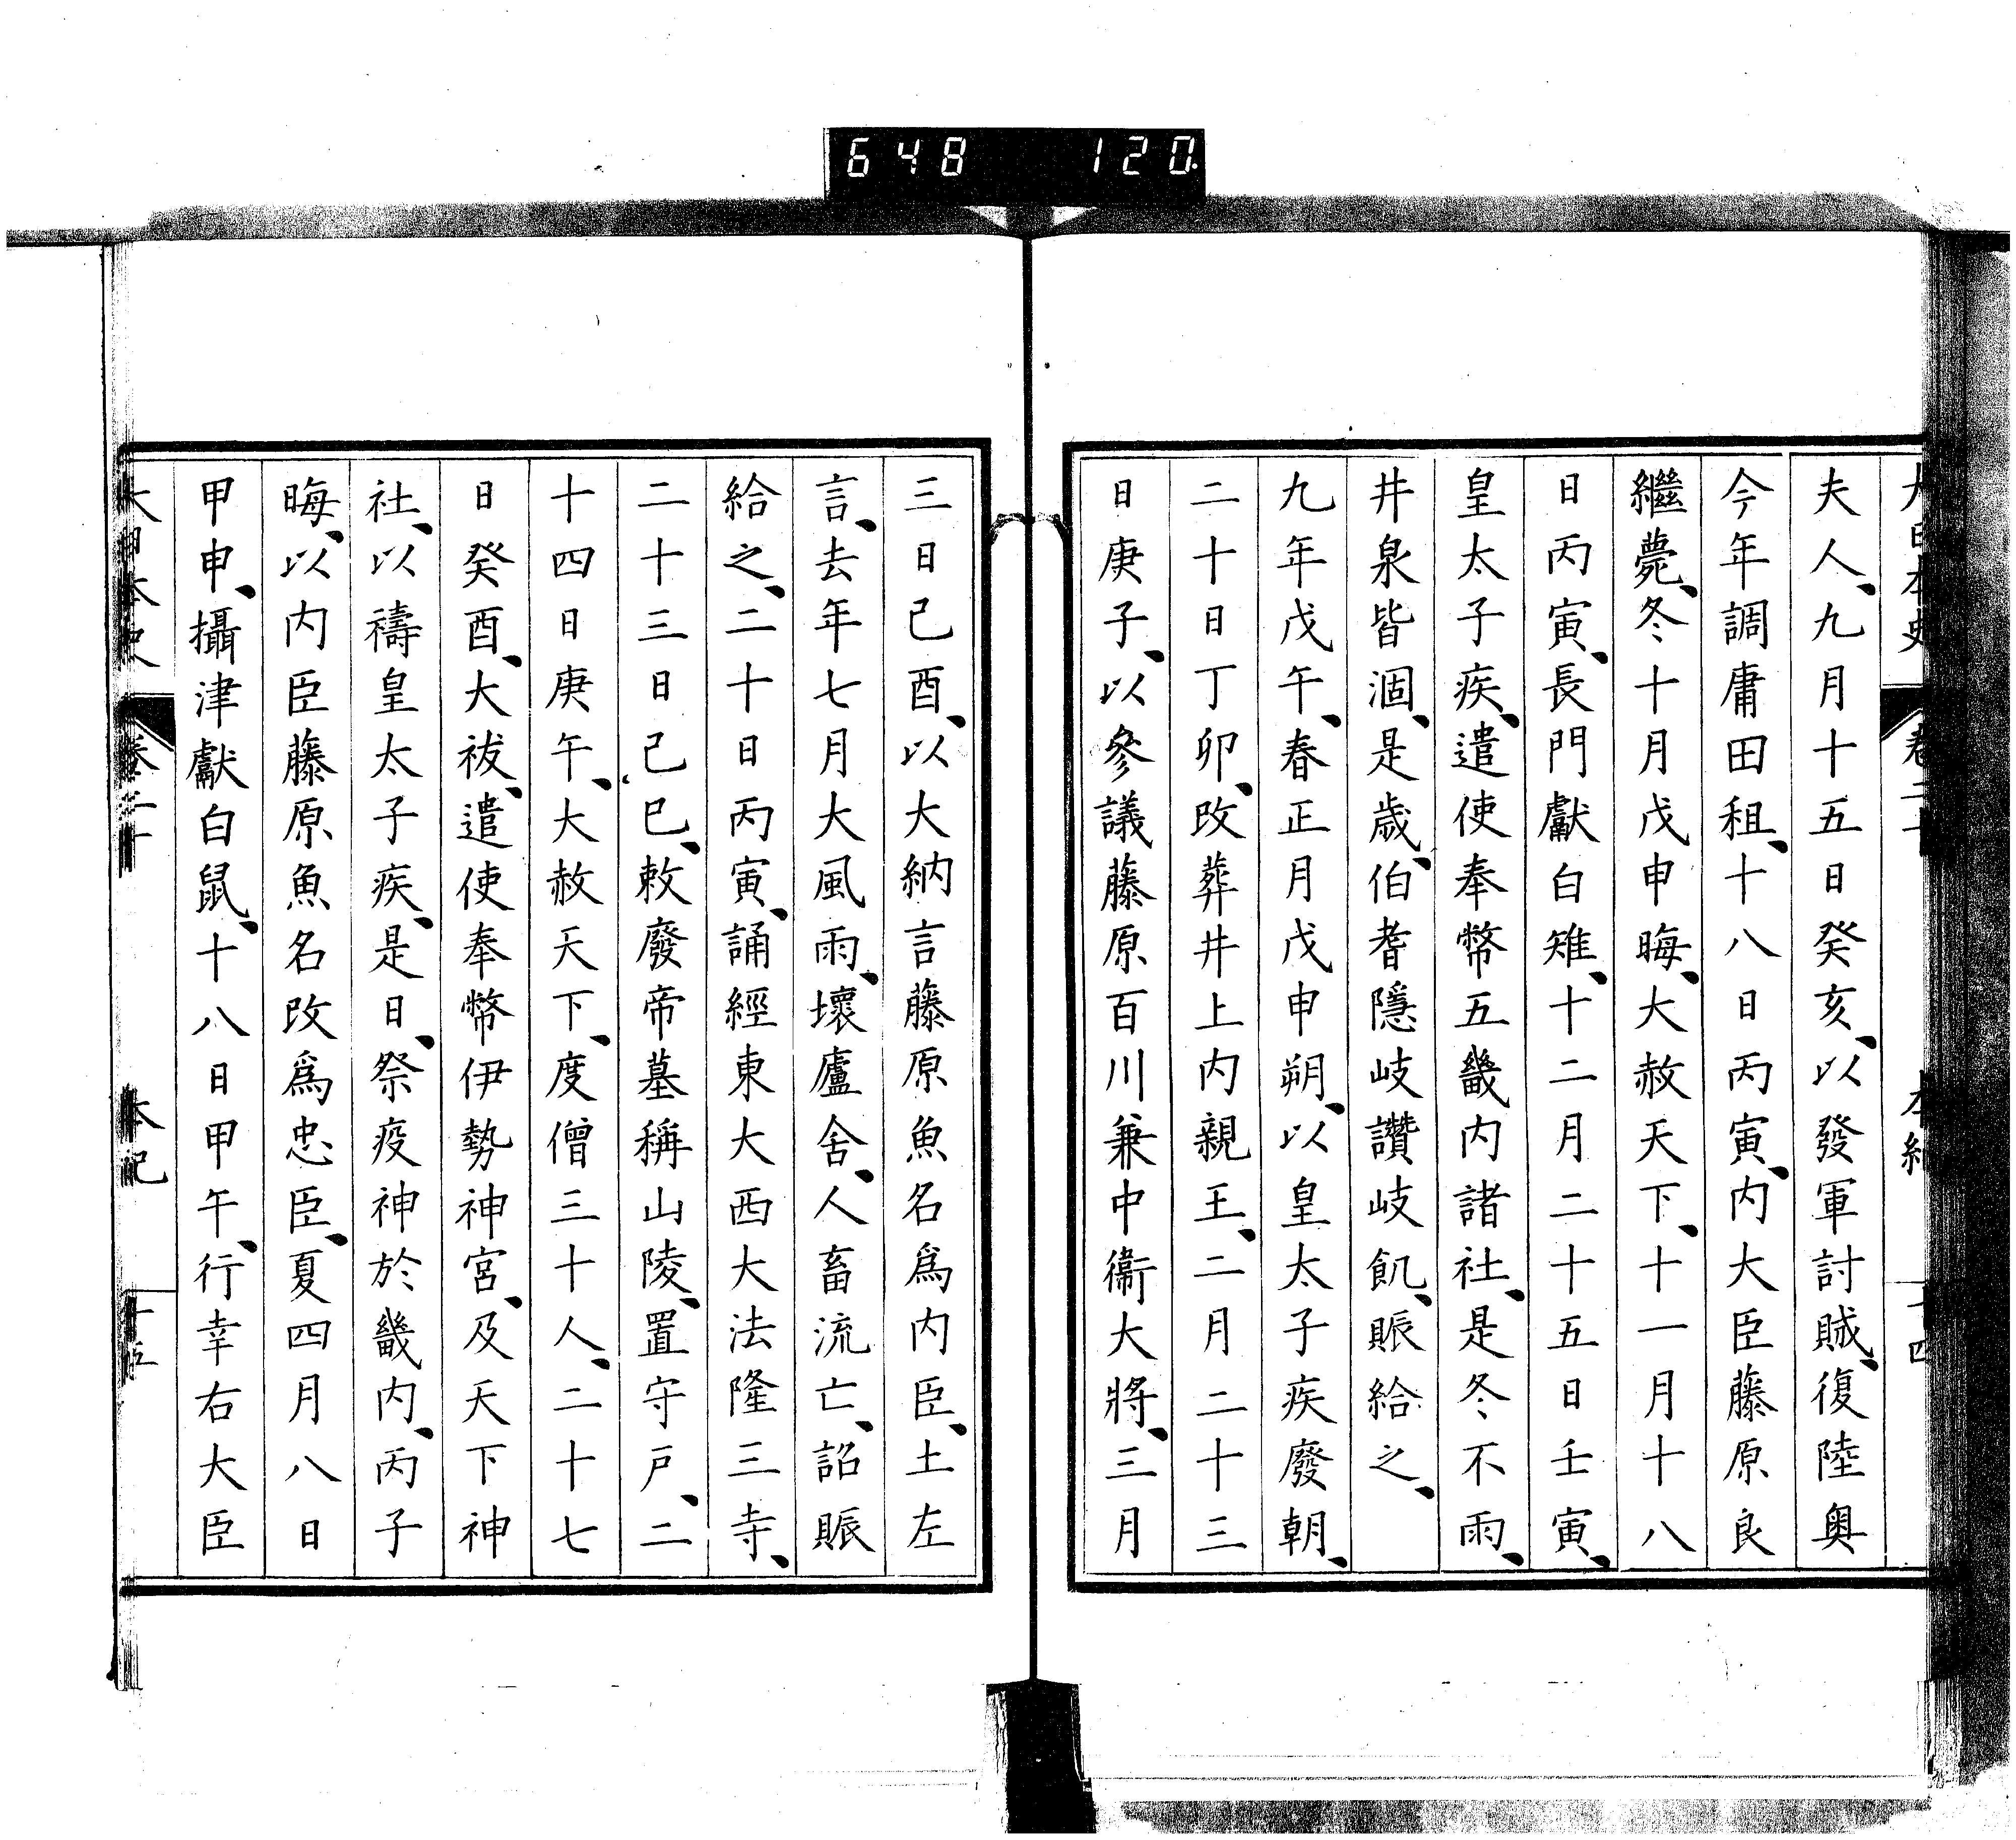 648 120.
大日本史 卷二十 本紀 十四
夫人、九月十五日癸亥、以發軍討賊、復陸奧
今年調庸田租、十八日丙寅、内大臣藤原良
繼薨、冬十月戊申晦、大赦天下、十一月十八
日丙寅、長門獻白雉、十二月二十五日壬寅、
皇太子疾、遣使奉幣五畿内諸社、是冬不雨、
井泉皆涸、是歲、伯耆隱岐讚岐飢、賑給之、
九年戊午、春正月戊申朔、以皇太子疾廢朝、
二十日丁卯、改葬井上内親王、二月二十三
日庚子、以參議藤原百川兼中衞大將、三月
三日己酉、以大納言藤原魚名爲内臣、土左
言、去年七月大風雨、壞廬舍、人畜流亡、詔賑
給之、二十日丙寅、誦經東大西大法隆三寺、
二十三日己巳、敕廢帝墓稱山陵、置守戸、二
十四日庚午、大赦天下、度僧三十人、二十七
日癸酉、大祓、遣使奉幣伊勢神宮、及天下神
社、以禱皇太子疾、是日、祭疫神於畿内、丙子
晦、以内臣藤原魚名改爲忠臣、夏四月八日
甲申、攝津獻白鼠、十八日甲午、行幸右大臣
大日本史 卷二十 本紀 十五